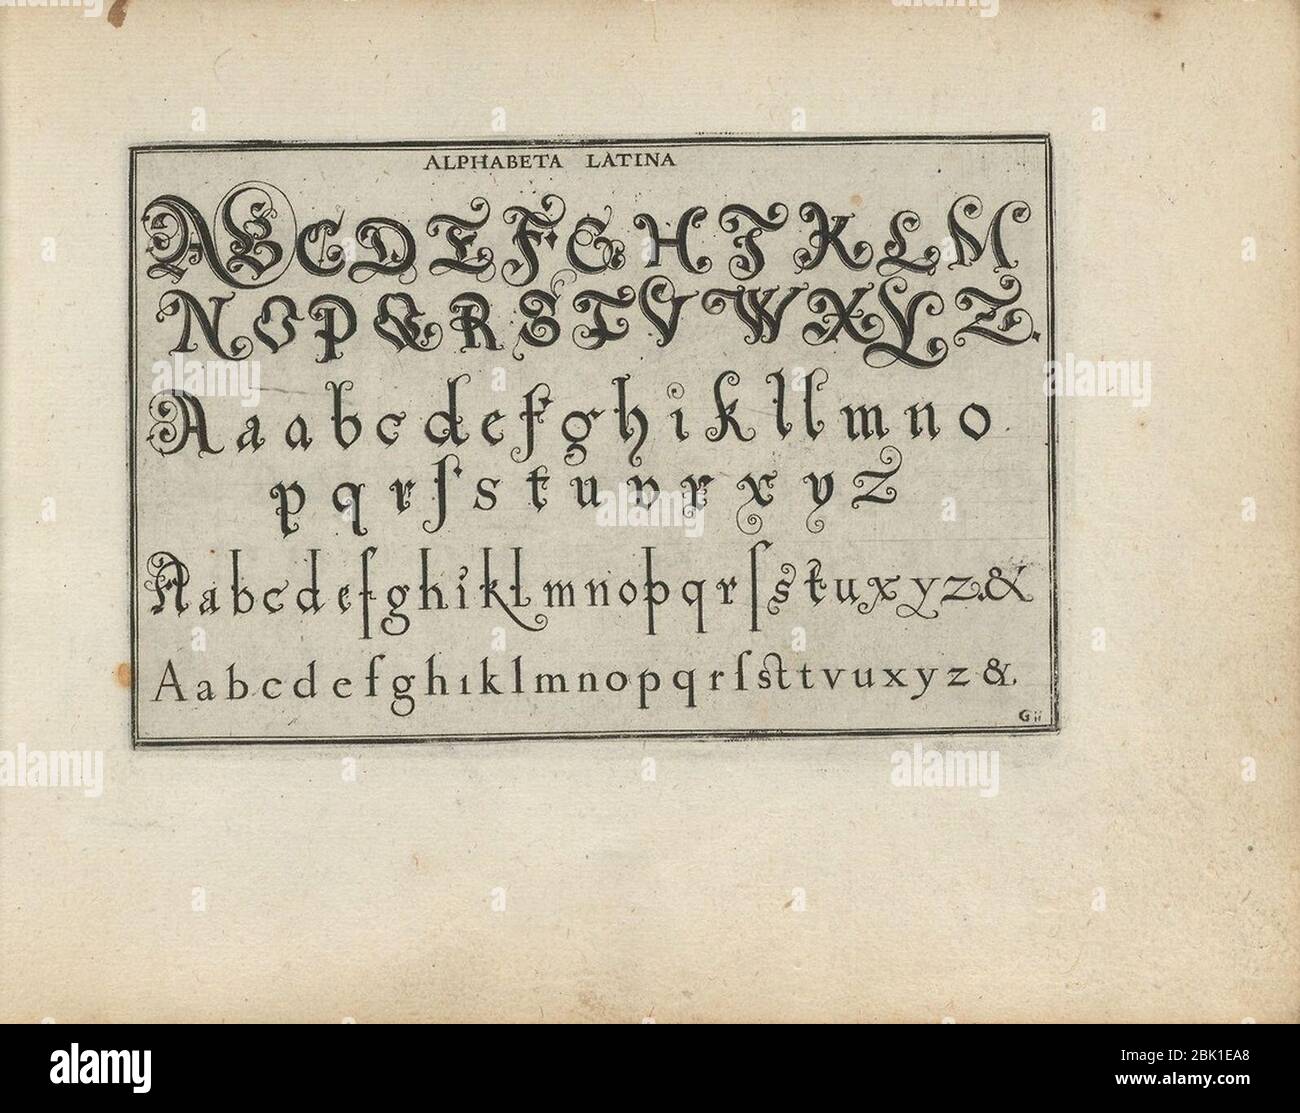 ALPHABETA LATINA
A B C D E F G H I K L M
N O P Q R S T V W X Y Z.
A a a b c d e f g h i k l l m n o
p q r ſ s t u v r x y z
A a b c d e f g h i k l m n o p q r ſ s t u x y z. &
A a b c d e f g h ı k l m n o p q r ſ s t t v u x y z &.
G ii
alamy
Image ID: 2BK1EA8
www.alamy.com